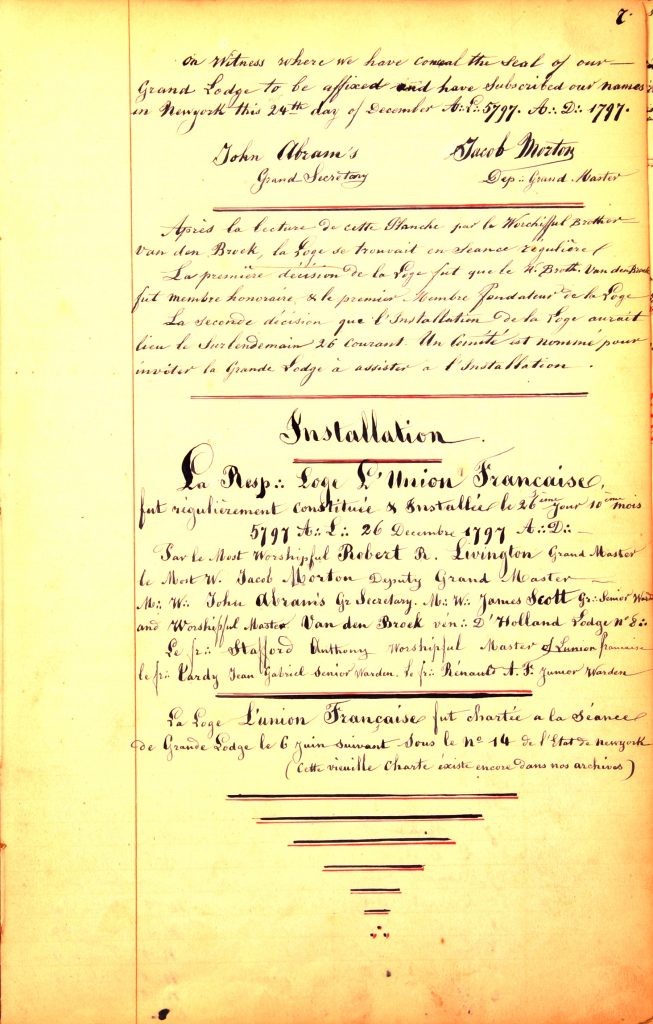 7.
On Witness where we have conseal the Seal of our
Grand Lodge to be affixed and have Subscribed our names
in Newyork this 24th day of December A∴L∴5797. A∴D∴1797.
John Abram's Jacob Morton
Grand Secretary Dep∴ Grand Master
Après la lecture de cette Planche par le Worchifful Brother
Van den Broek, la Loge se trouvait en Séance régulière
La première décision de la Loge fut que le W. Broth. Van den Broek
fut membre honoraire, & le premier Membre fondateur de la Loge
La Seconde décision que l'Installation de la Loge aurait
lieu le Surlendemain 26 courant. Un Comité est nommé pour
inviter la Grande Lodge à assister a l'Installation.
Installation.
La Resp∴ Loge L'Union Française,
fut régulièrement constituée & Installée le 26ème Jour 10ème mois
5797 A∴L∴ 26 Decembre 1797 A∴D∴
Par le Most Worshipful Robert R. Livington Grand Master
le Most W. Jacob Morton Deputy Grand Master
M∴ W∴ John Abram's Gr Secretary. M∴ W∴ James Scott Gr∴ Senior Warden
and Worshipful Master Van den Broek ven∴ D'Holland Lodge No 8∴
Le fr∴ Stafford Anthony Worshipful Master of Lunion française
le fr∴ Pardy Jean Gabriel Senior Warden. le fr∴ Rénault A. F. Junior Warden
La Loge L'union Française fut chartée a la Séance
de Grande Lodge le 6 Juin Suivant Sous le No 14 de l'Etat de Newyork
(Cette vieuille Charte existe encore dans nos archives)